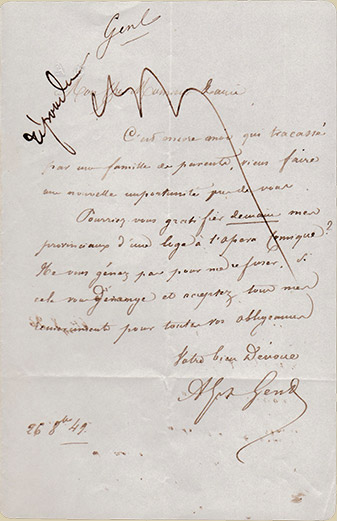 Gent
répondu
Mon cher Monsieur
C'est encore moi qui tracassé
par une famille de parents, viens faire
une nouvelle importunité près de vous
Pourriez vous gratifier demain mes
provinciaux d'une loge à l'opéra Comique?
Ne vous génez pas pour me refuser, si
cela vous dérange et acceptez tous mes
remerciments pour toutes vos obligeances
Votre bien Dévoué
Alph Gent
26 8bre 49